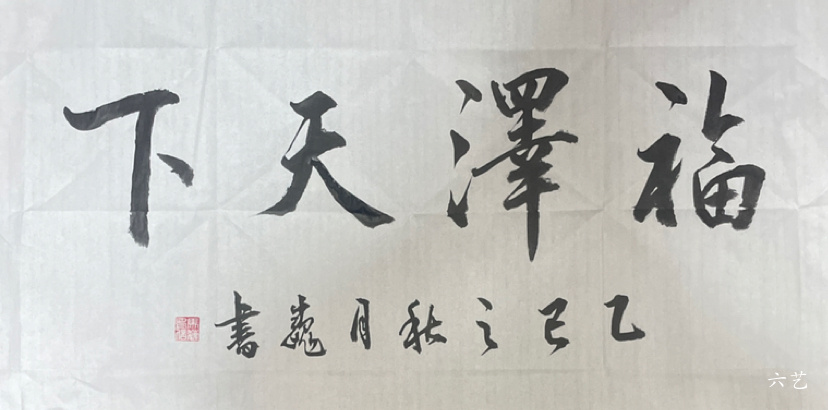 福澤天下
乙巳之秋月巍書
六艺